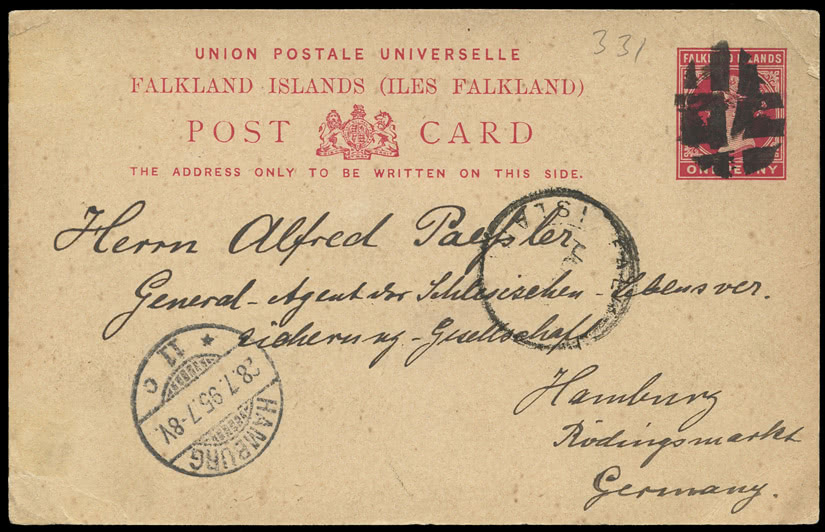 331
UNION POSTALE UNIVERSELLE
FALKLAND ISLANDS (ILES FALKLAND)
POST CARD
THE ADDRESS ONLY TO BE WRITTEN ON THIS SIDE.
FALKLAND ISLANDS
ONE PENNY
Herrn Alfred Paessler
General-Agent der Schlesischen-Lebensver.
sicherung-Gesellschaft
Hamburg
Rödingsmarkt
Germany.
HAMBURG
28.7.95.7-8V
* 11 c